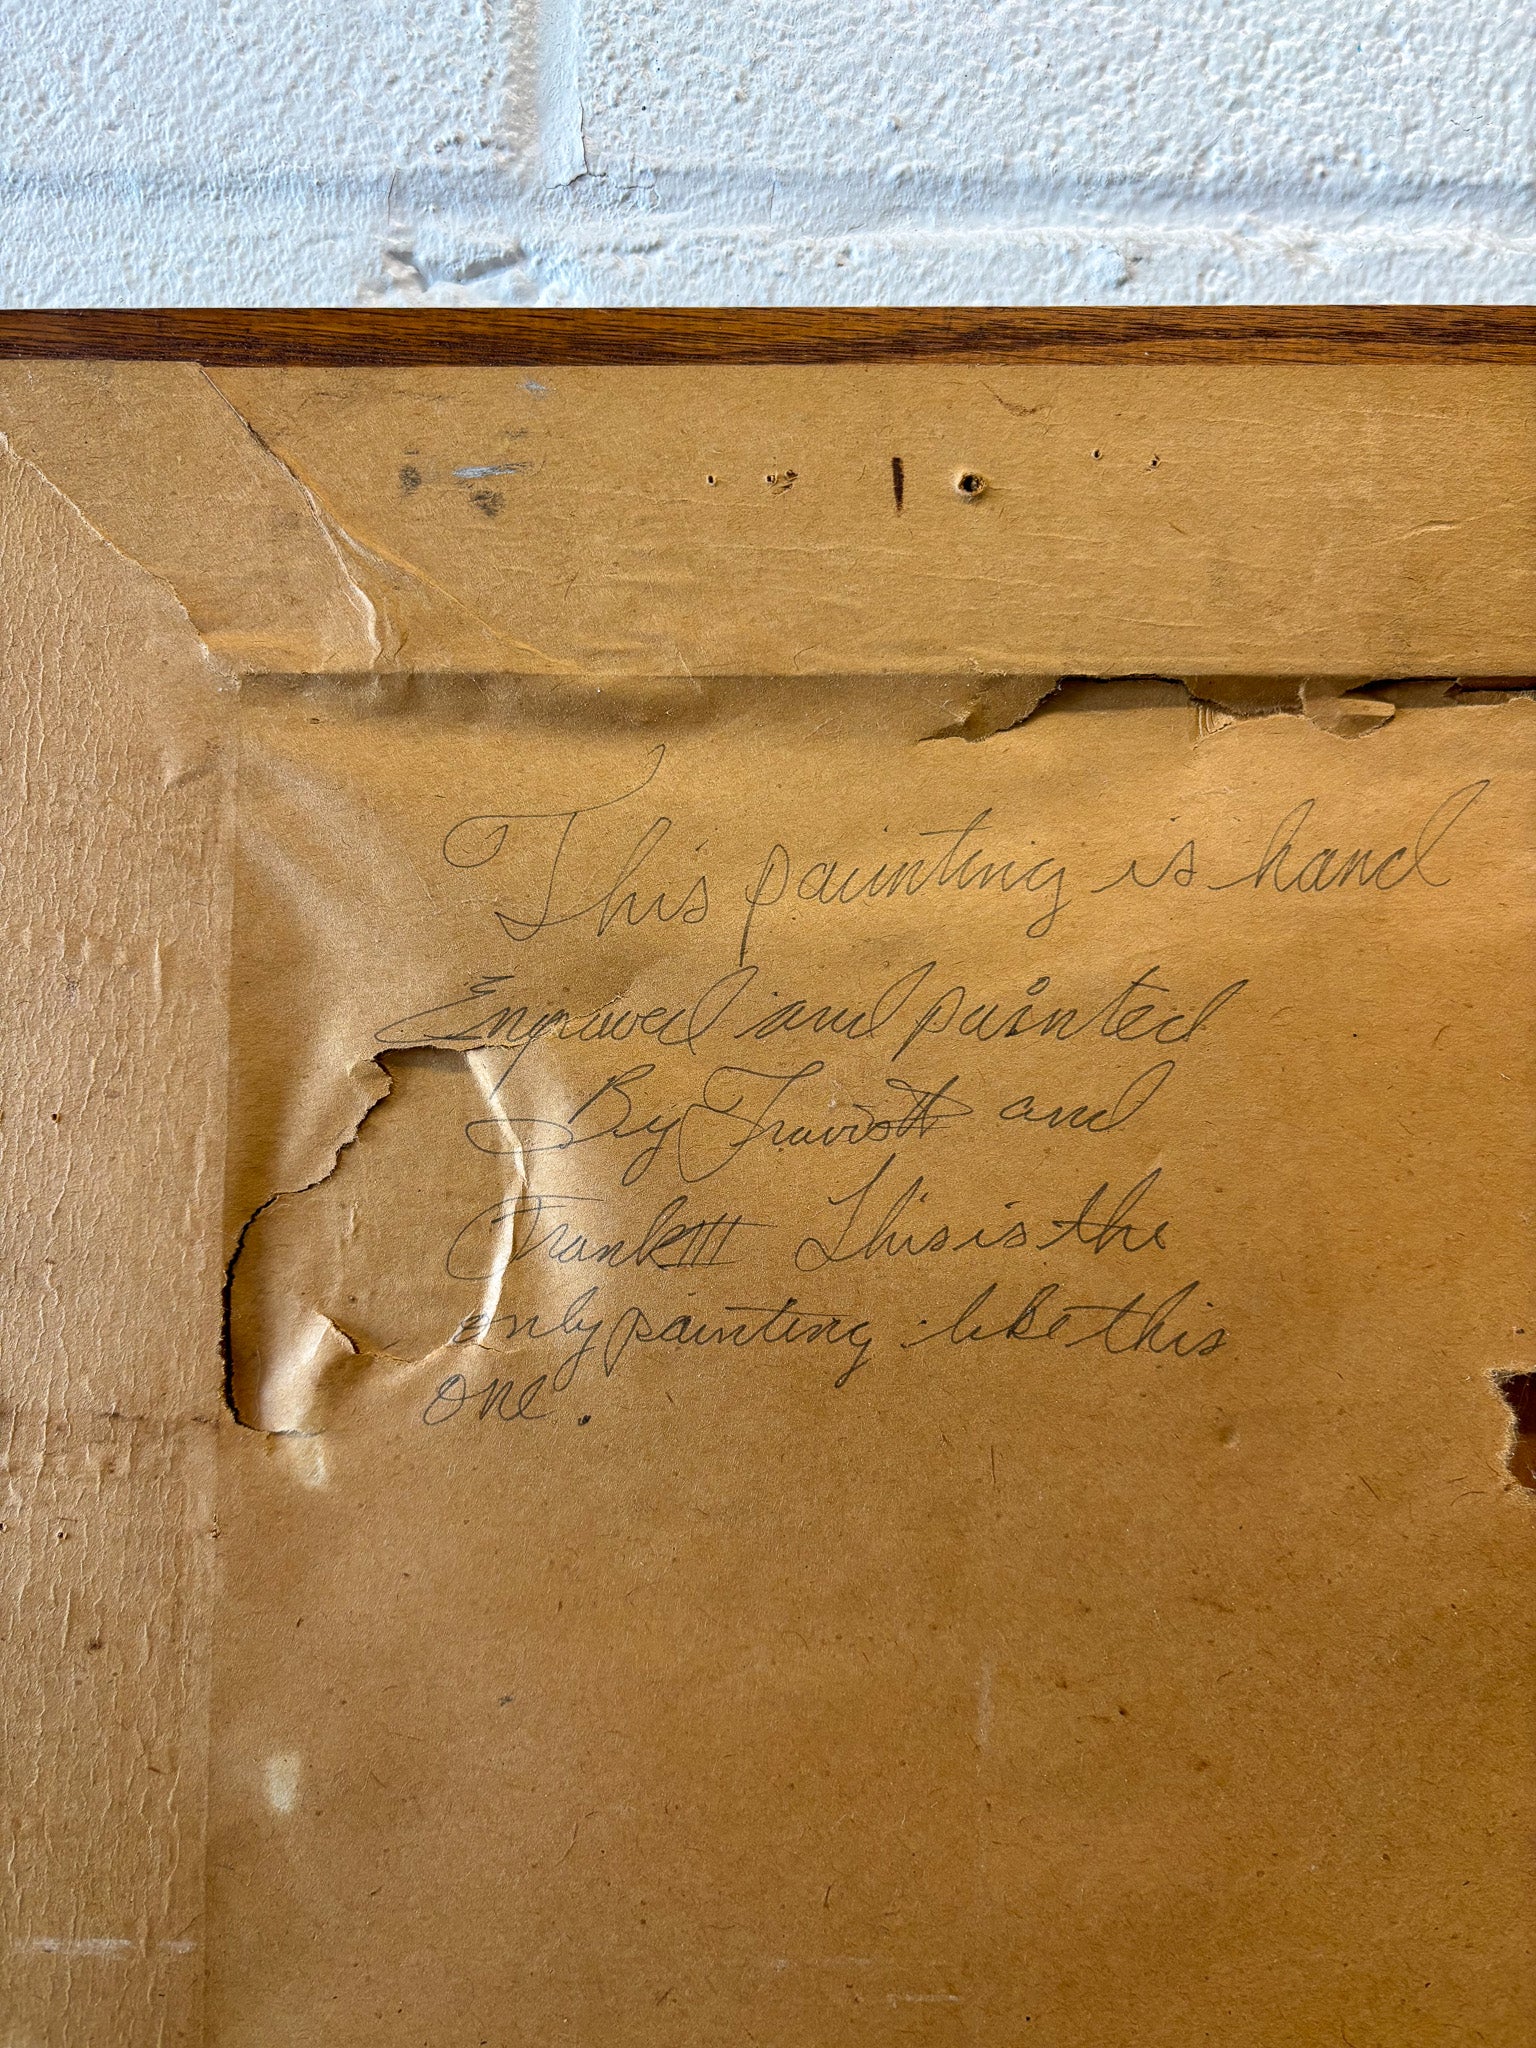 This painting is hand
Engraved and painted
By Travis II and
Frank III This is the
only painting like this
one.